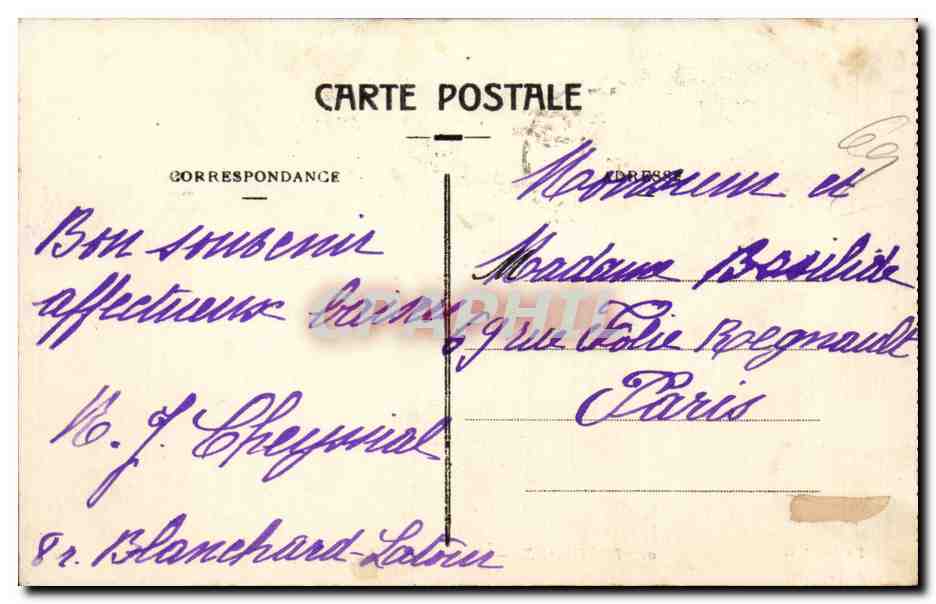 CARTE POSTALE
CORRESPONDANCE
Bon souvenir
affectueux baisers
M. J. Cheyssial
8 r. Blanchard-Latour
ADRESSE
Monsieur et
Madame Basilide
69 rue Folie Regnault
Paris
69